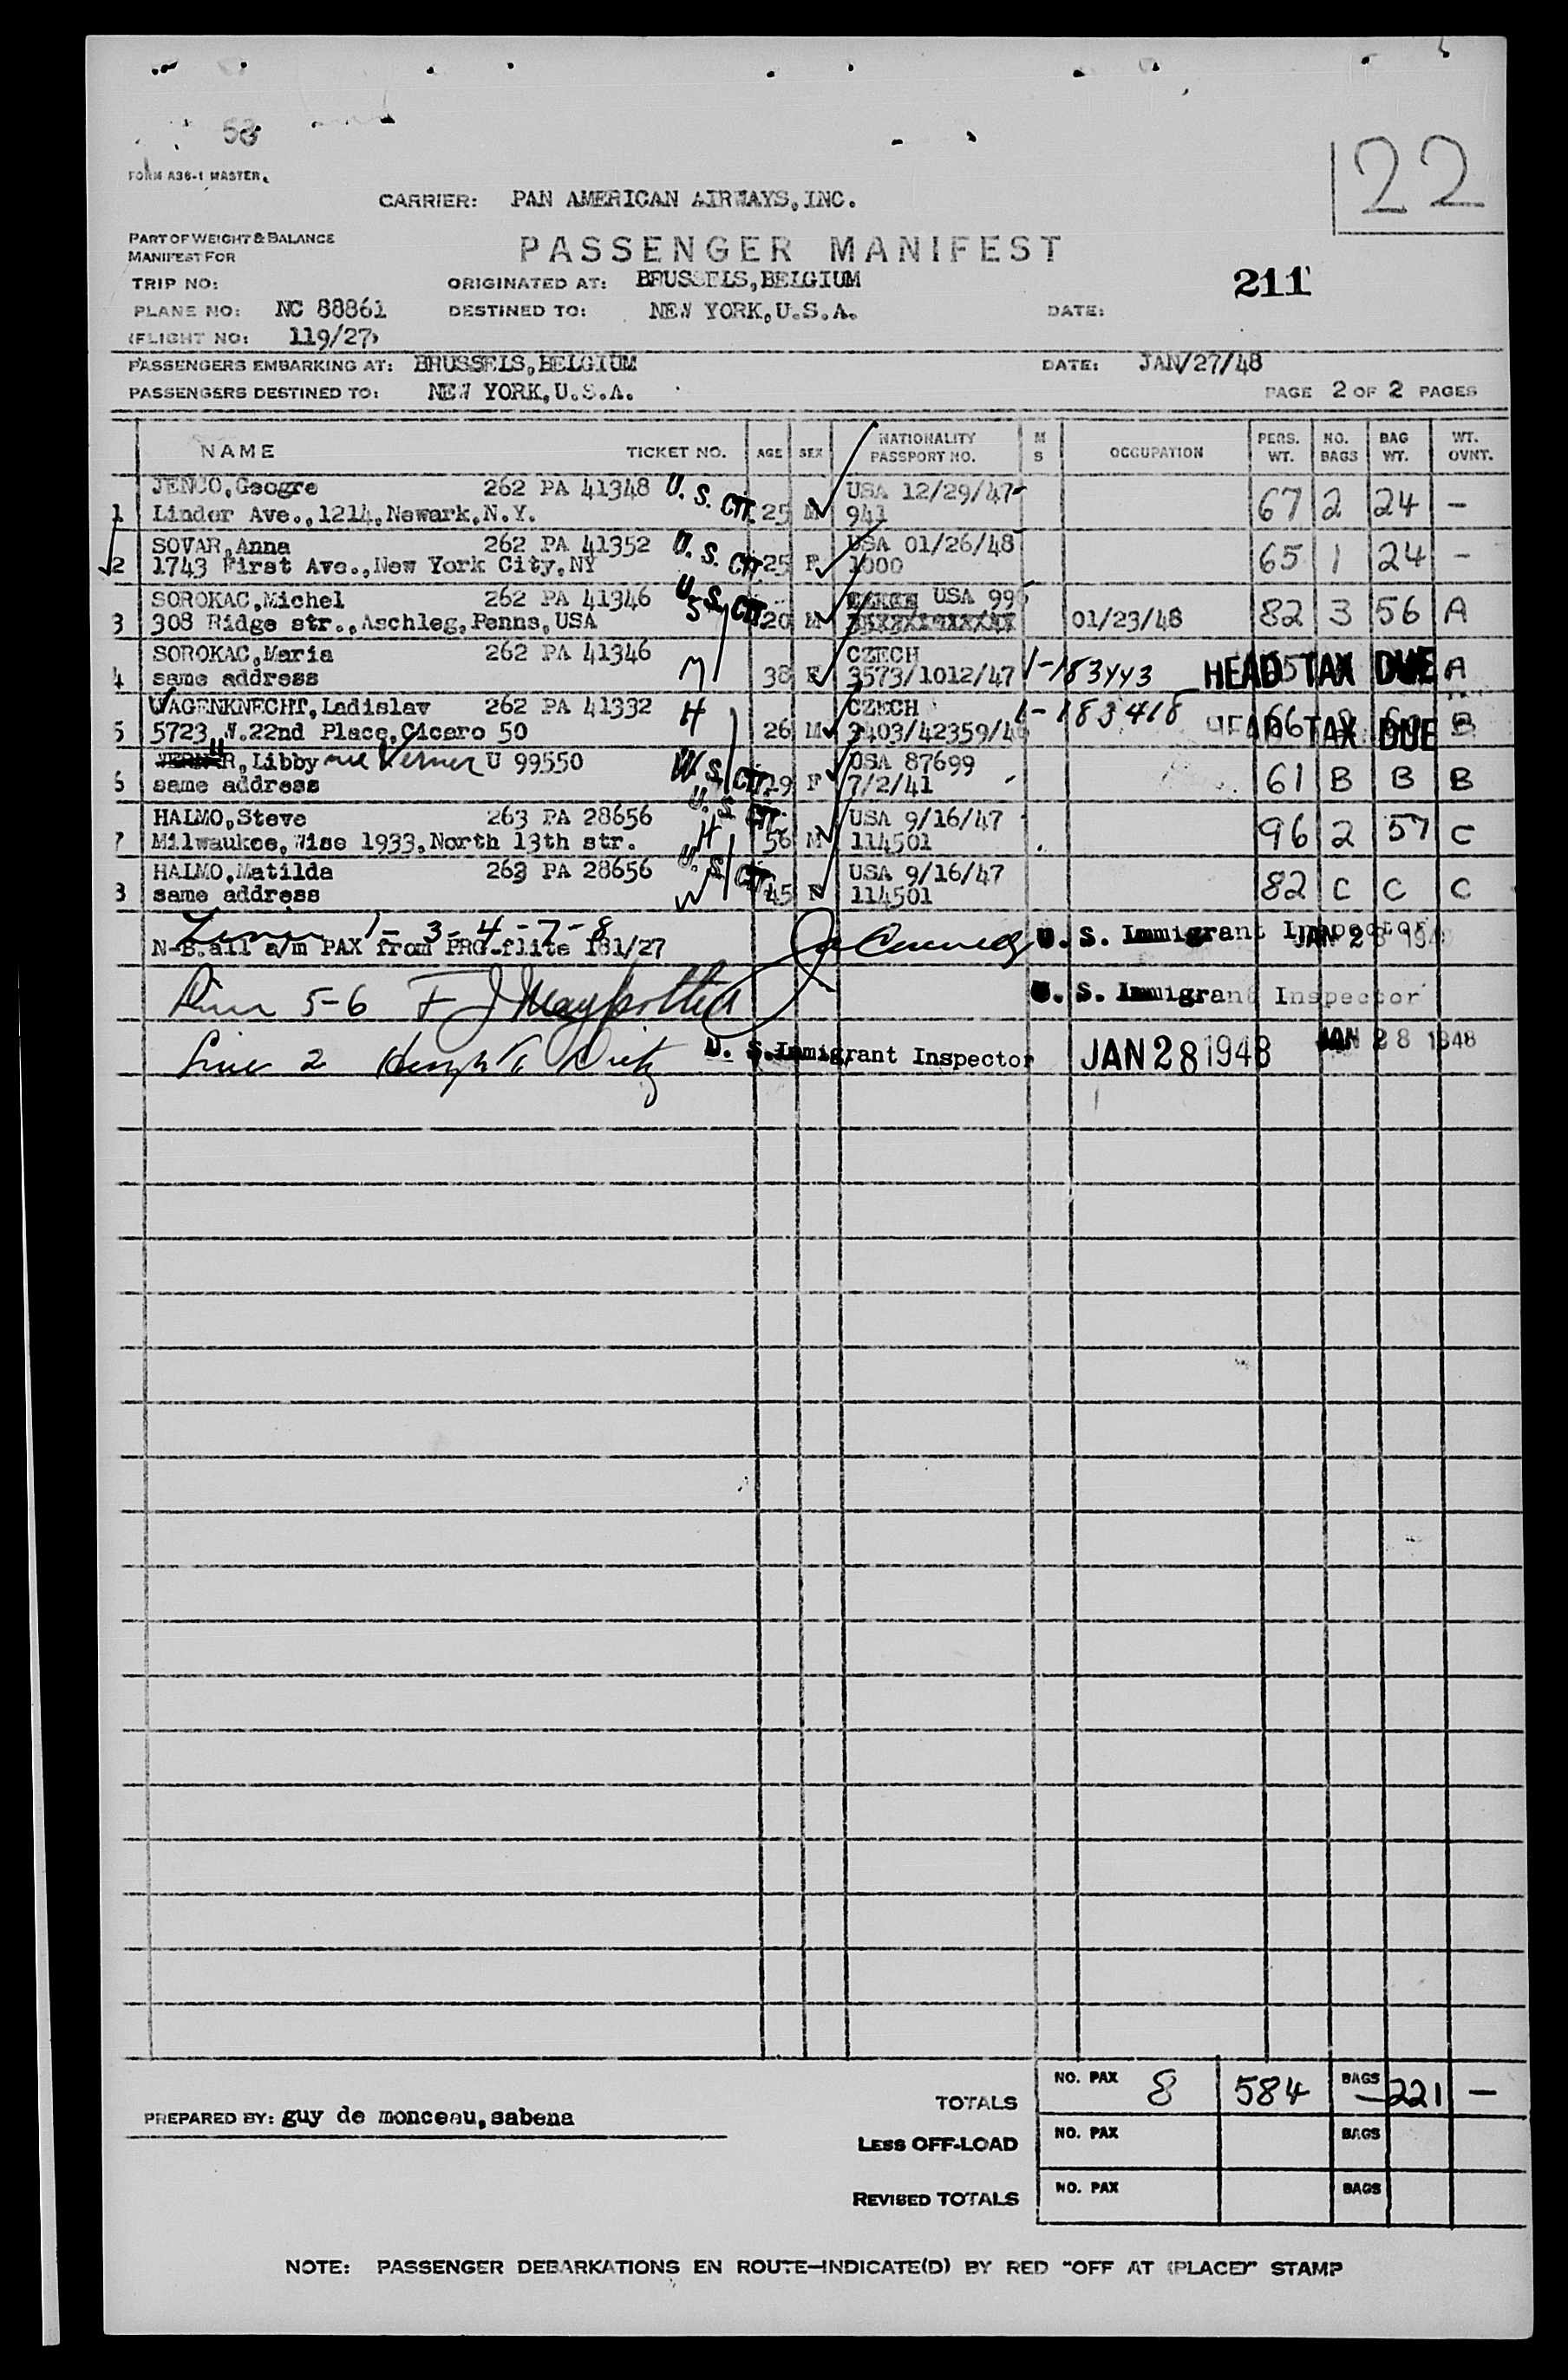 58
FORM A36-1 MASTER.
22
CARRIER: PAN AMERICAN AIRWAYS, INC.
PART OF WEIGHT & BALANCE
MANIFEST FOR
PASSENGER MANIFEST
211
TRIP NO: ORIGINATED AT: BRUSSELS,BELGIUM
PLANE NO: NC 88861 DESTINED TO: NEW YORK,U.S.A. DATE:
FLIGHT NO: 119/27
PASSENGERS EMBARKING AT: BRUSSELS,BELGIUM DATE: JAN/27/48
PASSENGERS DESTINED TO: NEW YORK,U.S.A. PAGE 2 OF 2 PAGES
NAME TICKET NO. AGE SEX NATIONALITY PASSPORT NO. M S OCCUPATION PERS. WT. NO. BAGS BAG WT. WT. OVNT.
JENCO,Geogre 262 PA 41348 U. S. CIT. USA 12/29/47
1 Linder Ave.,1214,Newark,N.Y. 25 M 941 67 2 24 -
SOVAR,Anna 262 PA 41352 U. S. CIT. USA 01/26/48
2 1743 First Ave.,New York City,NY 25 F 1000 65 1 24 -
SOROKAC,Michel 262 PA 41346 U. S. CIT. USA 996
3 308 Ridge str.,Aschleg,Penns,USA S 20 M 01/23/48 82 3 56 A
SOROKAC,Maria 262 PA 41346 CZECH
4 same address M 38 F 3573/1012/47 1-183443 HEAD TAX DUE A
WAGENKNECHT,Ladislav 262 PA 41332 H CZECH
5 5723 W.22nd Place,Cicero 50 26 M 3403/42359/46 1-183418 66 HEAD TAX DUE B
VERNER, Libby nee Verner U 99550 W U. S. CIT. USA 87699
6 same address 19 F 7/2/41 61 B B B
HALMO,Steve 263 PA 28656 U. S. CIT. USA 9/16/47
7 Milwaukee,Wisc 1933,North 13th str. H 56 M 114501 96 2 57 C
HALMO,Matilda 263 PA 28656 U. S. CIT. USA 9/16/47
8 same address W 45 F 114501 82 C C C
1-3-4-7-8 U. S. Immigrant Inspector JAN 28 1948
N-B.all a/m PAX from PRG-flite 181/27
5-6 U. S. Immigrant Inspector
Line 2 U. S. Immigrant Inspector JAN 28 1948 JAN 28 1948
TOTALS NO. PAX 8 584 BAGS - 221 -
PREPARED BY: guy de monceau,sabena
LESS OFF-LOAD NO. PAX BAGS
REVISED TOTALS NO. PAX BAGS
NOTE: PASSENGER DEBARKATIONS EN ROUTE-INDICATE(D) BY RED "OFF AT (PLACE)" STAMP